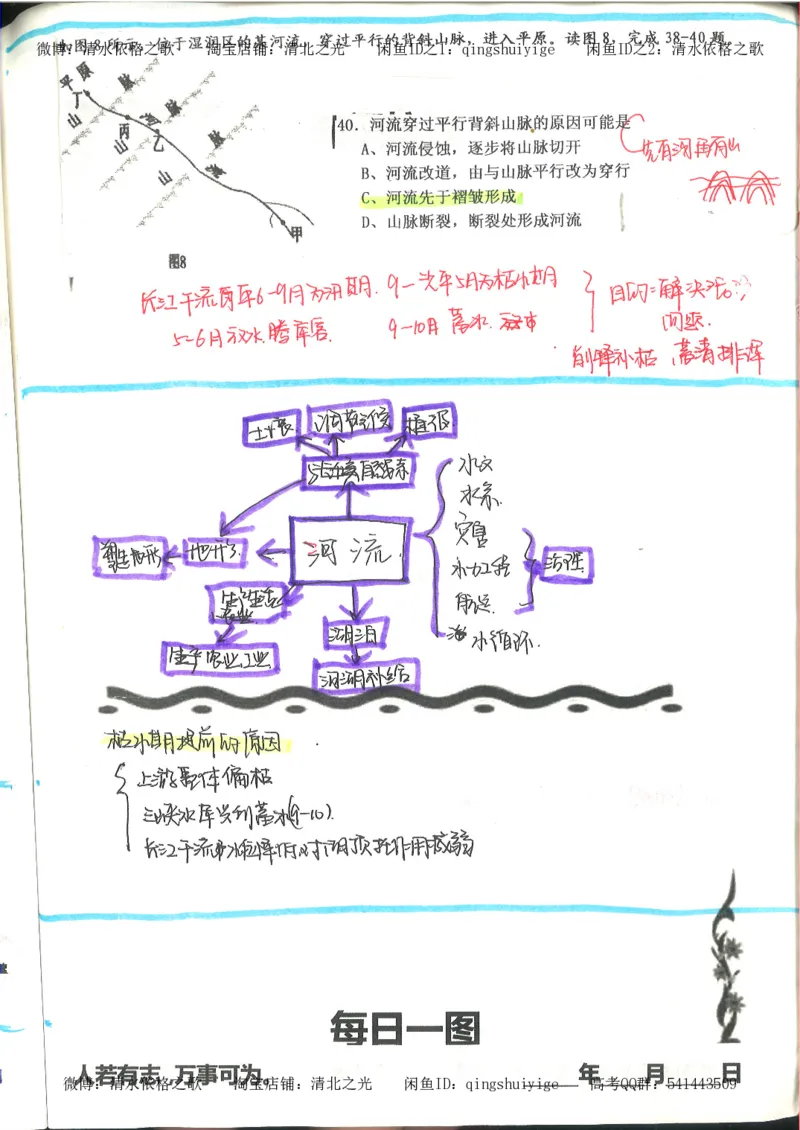 如图8所示,位于湿润区的某河流,穿过平行的背斜山脉,进入平原。读图8,完成38-40题。
微博:清水依格之歌 淘宝店铺:清北之光 闲鱼ID之1:qingshuiyige 闲鱼ID之2:清水依格之歌
平原
丁
山
脉
丙
山
河
脉
乙
山
脉
流
甲
图8
40. 河流穿过平行背斜山脉的原因可能是
A、河流侵蚀,逐步将山脉切开
B、河流改道,由与山脉平行改为穿行
C、河流先于褶皱形成
D、山脉断裂,断裂处形成河流
先有河再有山
长江干流每年6-9月为汛期.9-次年5月为枯水期
5-6月放水.腾库容.
9-10月蓄水.
目的:解决泥沙
问题.
削峰补枯 蓄清排浑
土壤
调节气候
植被
沿岸自然要素
水文
水系
灾害
水力工程
航运
水循环.
治理
塑造地形
地形
河流
生产生活
农业
生产农业工业
湖泊
河湖补给
枯水期提前的原因
上游整体偏枯
三峡水库汛到蓄水(9-10)
长江干流水位降低,对湖顶托作用减弱
每日一图
人若有志,万事可为。
年 月 日
微博:清水依格之歌 淘宝店铺:清北之光 闲鱼ID:qingshuiyige 高考QQ群:541443509